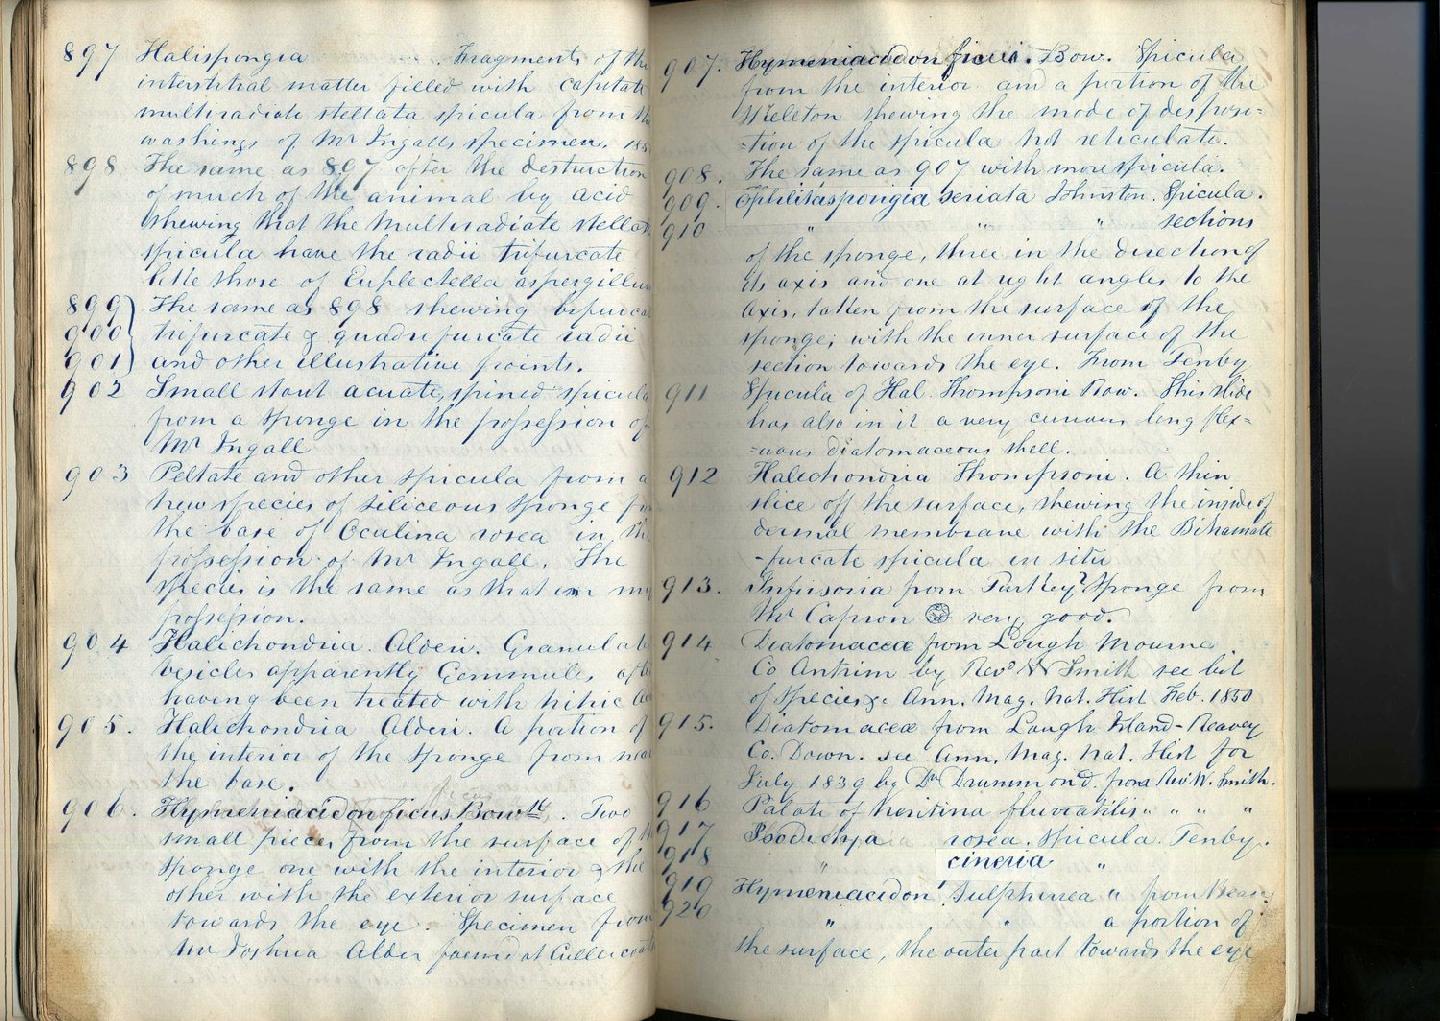 897 Halispongia Fragments of the
interstitial matter filled with capitate
multiradiate stellata spicula from the
washings of Mr Ingalls specimen.
898 The same as 897 after the destruction
of much of the animal by acid
shewing that the multiradiate stellat
spicula have the radii trifurcate
like those of Euplectella aspergillum
899 The same as 898 shewing bifurca
900 trifurcate & quadrifurcate radii
901 and other illustrative points.
902 Small stout acuate, spined spicula
from a sponge in the possession of
Mr Ingall
903 Peltate and other spicula from a
new species of siliceous sponge
the base of Oculina rosea in the
possession of Mr Ingall. The
species is the same as that in my
possession.
904 Halichondria. Alderi. Granulat
vesicles apparently Gemmules, afte
having been treated with nitric ac
905. Halichondria Alderi. A portion of
the interior of the sponge from nea
the base.
906. Hymeniacidon ficus Bowk. Two
small pieces from the surface of th
sponge one with the interior & the
other with the exterior surface
towards the eye. Specimen from
Mr Joshua Alder found at Cullercoats
907. Hymeniacidon ficus. Bow. Spicula
from the interior and a portion of the
skeleton shewing the mode of disposi=
=tion of the spicula not reticulate.
908. The same as 907 with more spicula.
909. Ophlitaspongia seriata Johnston. Spicula.
910 " " " sections
of the sponge, three in the direction of
its axis and one at right angles to the
axis, taken from the surface of the
sponge; with the inner surface of the
section towards the eye. From Tenby
911 Spicula of Hal. Thompsoni Bow. This slide
has also in it a very curious long flex=
=uous diatomaceous shell.
912 Halichondria Thompsoni. A thin
slice off the surface, shewing the inside of
dermal membrane with the Bihamate
-furcate spicula in situ
913. Infusoria from Turkey? Sponge from
Mr Capron very good.
914 Diatomacea from Lough Mourne
Co Antrim by Revd W Smith see list
of species &c Ann. Mag. Nat. Hist Feb. 1850
915. Diatomacea from Lough Island-Reavey
Co. Down. see Ann. Mag. Nat. Hist for
July 1839 by Dr Drummond. from Rev W. Smith.
916 Palate of Neritina fluviatilis " " "
917 Isodictya rosea. Spicula. Tenby.
918 " cineria "
919 Hymeniacidon Sulphurea " from
920 " " a portion of
the surface, the outer part towards the eye